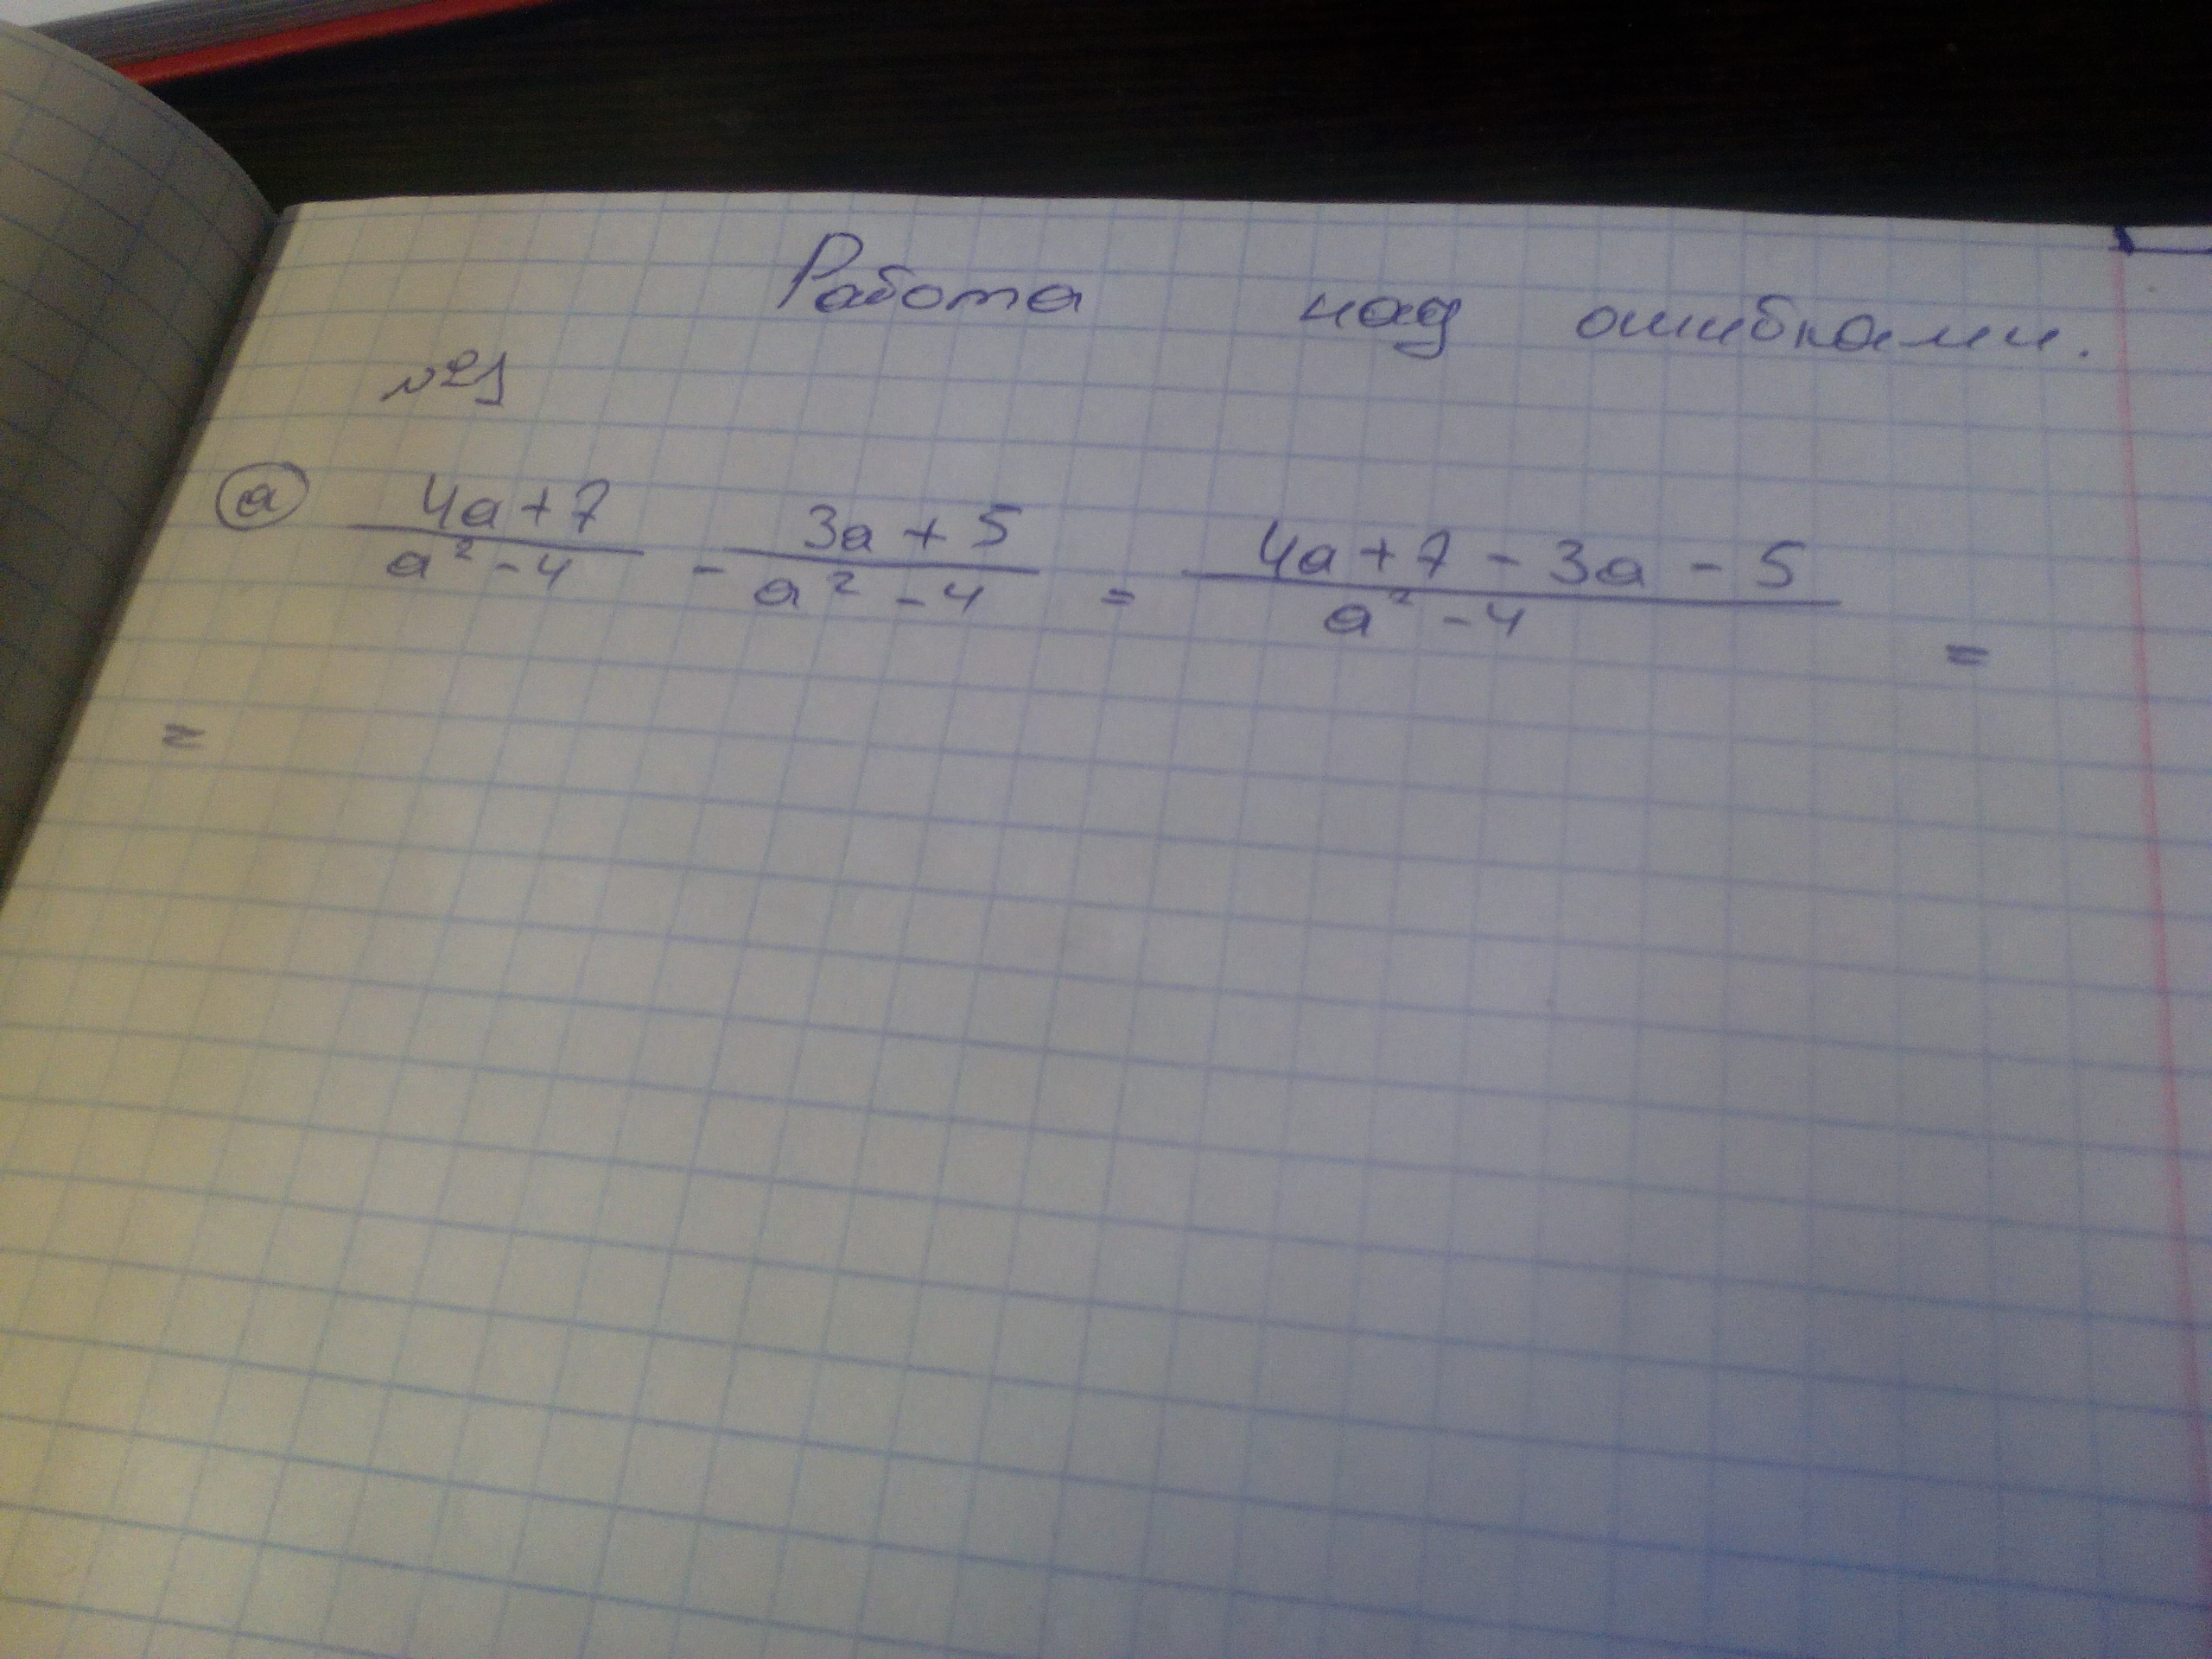 Работа над ошибками.
№1
а) (4a+7)/(a²-4) - (3a+5)/(a²-4) = (4a+7-3a-5)/(a²-4) =
=